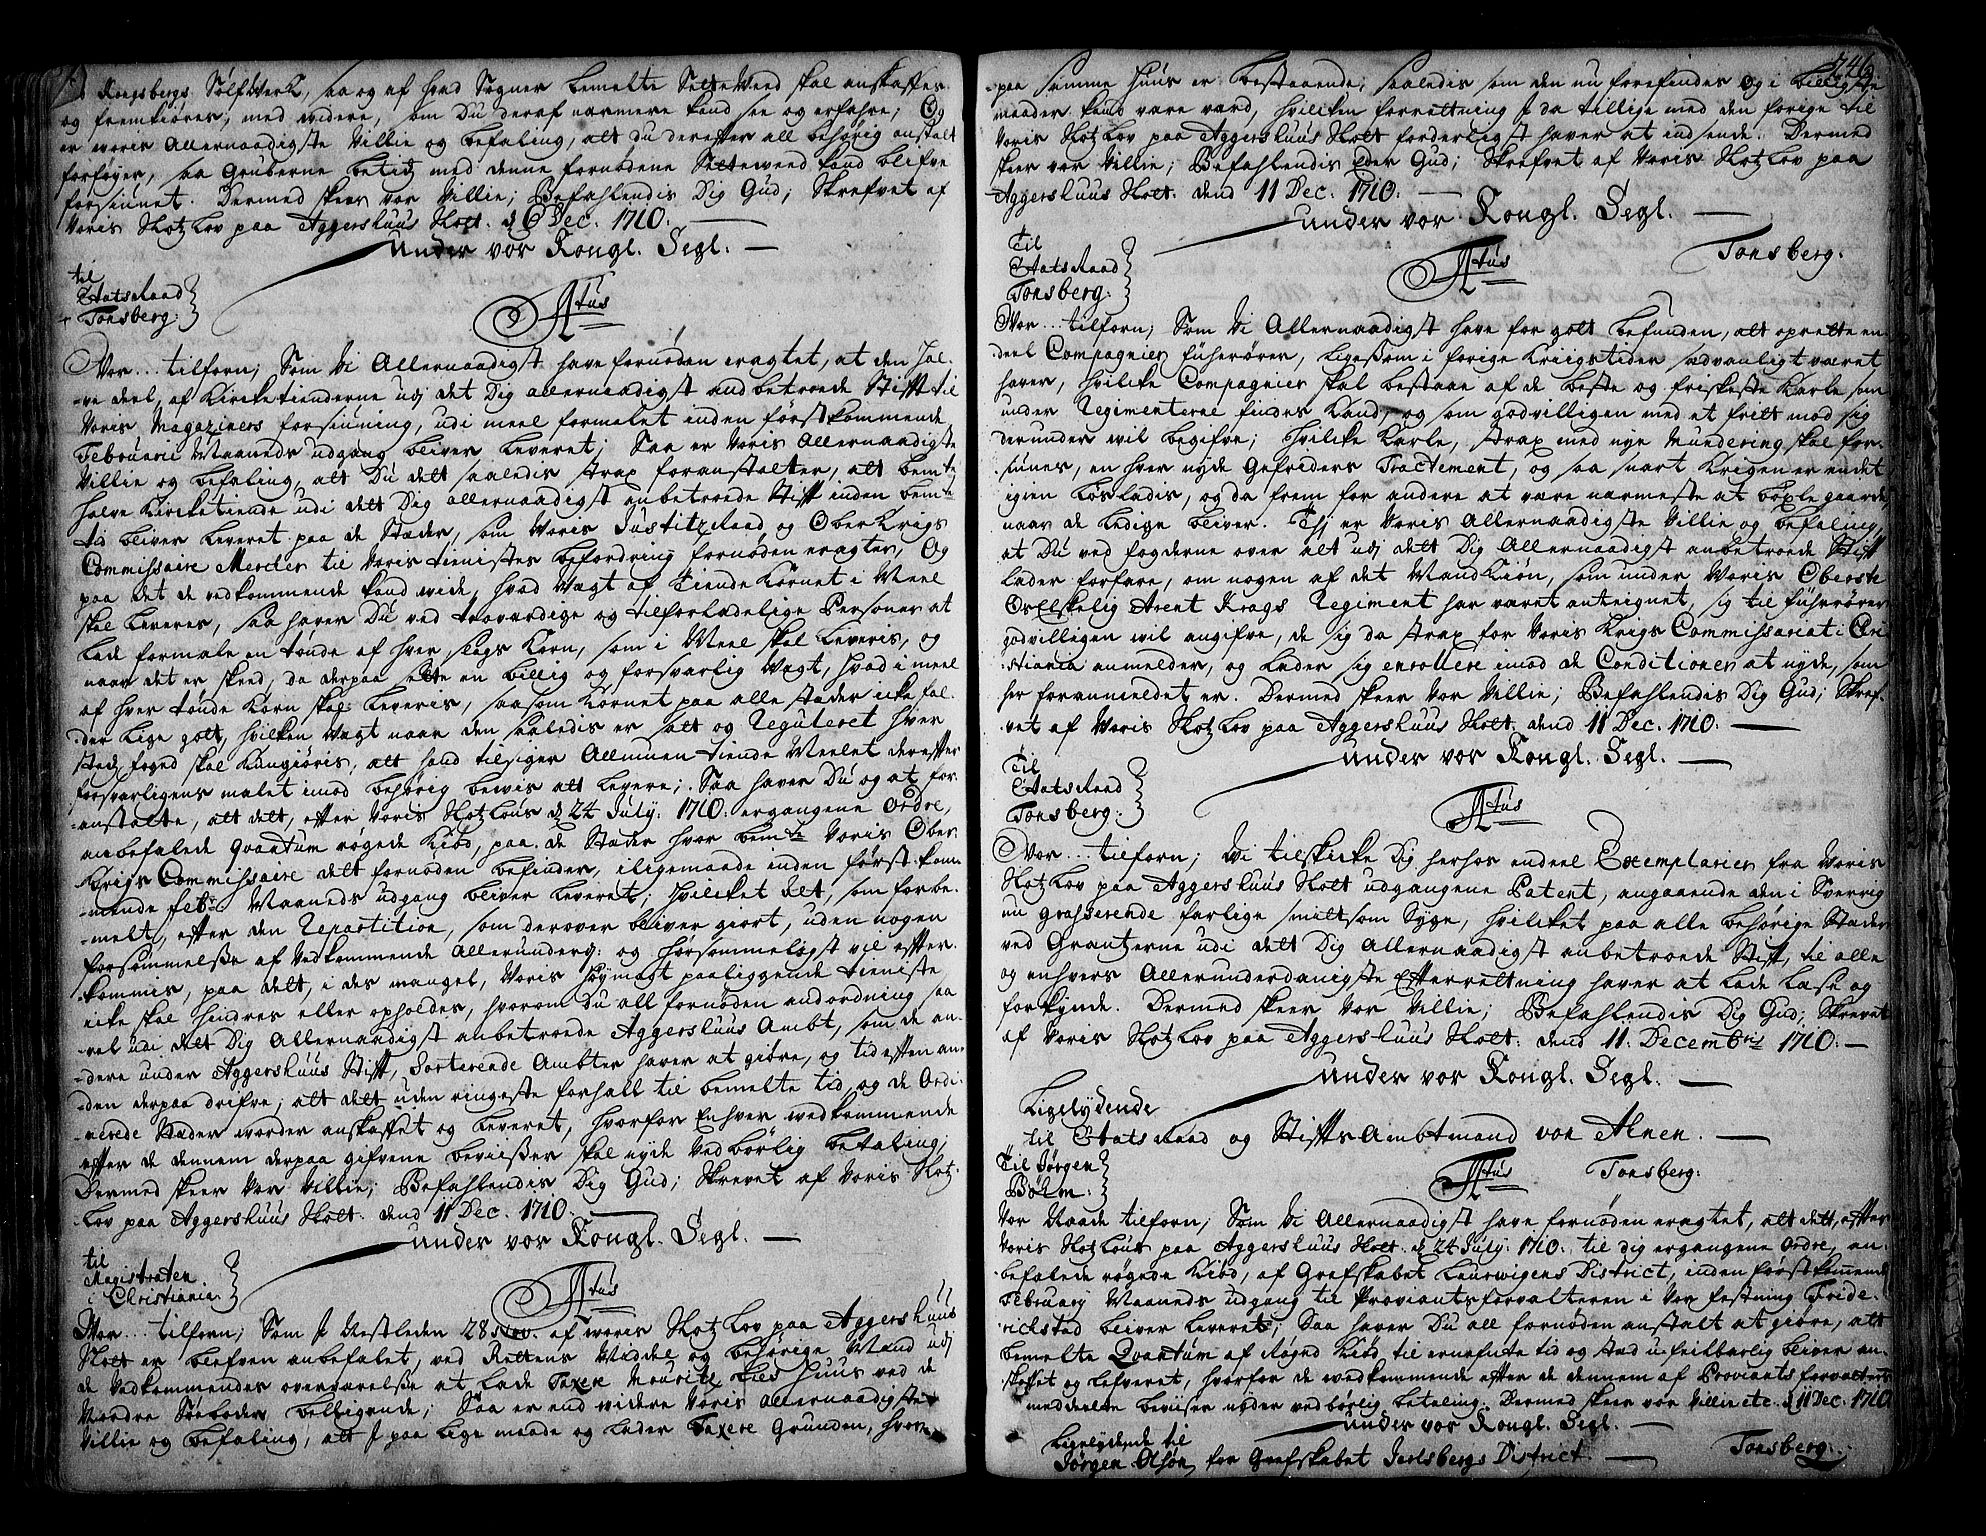 Kongsbergs Sølfwerk, saa og af hvad Sogner bemelte Sætteveed skal anskaffes
og fremføres, med widere, som Du deraf narmere kand see og erfahre; Og
er woris Allernaadigste Villie og befaling, alt du derefter all behörig anstalt
forføyer, saa Gruberne betids med denne fornødene Sætteweed kand blifve
forsiunet. Dermed skeer vor Villie; Befahlendis Dig Gud; Skrefvet af
Voris Slotz Lov paa Aggershuus Slott. d 6 Dec. 1710.
under vor Kongl. Segl.
til
Etats Raad
Tonsberg.
Atus
Vor... tilforn; Som Vi Allernaadigst have fornøden eragtet, at den hal-
ve deel, af Kircketienderne udj det Dig allernaadigst andbetroede Stifft til
Voris Magaziners forsiuning, udi meel formalet inden førstkommende
Februarii Maaneds udgang bliver Leveret; Saa er Voris Allernaadigste
Villie og befaling, alt Du dett saaledis strax foranstalter, alt bemte
halve Kircketiende udi dett Dig allernaadigst anbetroede Stifft inden bemte
tid bliver Leveret paa de Stæder, som Voris Justitz Raad og Ober Krigs
Commissaire Mercker til Voris tienistes befordring fornøden eragter, Og
paa det de vedkommende kand wide, hvad Vægt af Tiende Kornet i Meel
skal Leveres, saa haver Du ved trovardige og tilforladelige Personer at
Lade formale en tønde af hver slags Korn, som i Meel skal Leveris, og
naar det er skeed, da derpaa sette en billig og forsvarlig Vægt, hvad i meel
af hver tønde Korn skal Leveris, saasom Kornet paa alle stæder icke fal-
der Lige gott, hvilken Vægt naar den saaledis er satt og Reguleret hver
sted, foged skal kundgiøris, alt hand tilsiger Allmuen tiende Meelet derefter
forsvarligens malet imod behörig bewis alt Levere; Saa haver Du og at for-
anstalte, alt dett, efter Voris Slotz Lovs d 24 July. 1710. ergangene Ordre,
anbefalede Qvantum røgede Kiød, paa de Stæder hvor bemte Voris Ober
Krigs Commissaire dett fornøden befinder, iligemaade inden først kom-
mende Febr. Maaneds udgang bliver Leveret; Hvilcket dett, som forbe-
melt, efter den Repartition, som derover bliver giort, uden nogen
forsømmelse af Vedkommende Allerunderg: og hørsommeligst vil efter-
kommis, paa dett, i des mangel, Voris høymagt paaliggende tieniste
icke skal hindres eller opholdes, hvorom Du all fornøden andordning saa
vel udi dett Dig Allernaadigst anbetroede Aggershuus Ambt, som de an-
dere under Aggershuus Stifft, Sorterende Ambter haver at giøre, og tid efter an-
den derpaa drifve, alt dett uden ringeste forhall til bemelte tid, og de Ordi-
nerede Stæder worder anskaffet og Leveret, hvorfor Enhver wedkommende
efter de dennem derpaa gifvene beviisser skal nyde Vedbørlig betaling;
Dermed skeer Vor Villie; Befahlendis Dig Gud; Skrevet af Voris Slotz-
Lov paa Aggershuus Slott. dend 11 Dec. 1710.
under vor Kongl. Segl.
til
Magistraten
i Christiania.
Atus
Vor... tilforn; Som I Nestleden 28 Nov. af woris Slotz Lov paa Aggershuus
Slott er blefven anbefalet, ved Rettens Middel og behörige Mænd udj
de Vedkommendes overværelsse at Lade Taxere Mouritz huus ved de
Nordre Søeboder belliggende; Saa er end widere Voris Allernaadigste
Villie og befaling, alt I paa Lige maade og Lader Taxere Grunden, hvor-
746
paa samme huus er bestaaende, saaledis som den nu forefindes og i billigste
maader kand være værd, hvilken forrettning I da tillige med den forige til
Voris Slotz Lov paa Aggershuus Slott forderligst haver at indsende. Dermed
skeer vor Villie; Befahlendis Eder Gud; Skrefvet af Voris Slotz Lov paa
Aggershuus Slott. dend 11 Dec. 1710.
under vor Kongl. Segl.
Tonsberg.
Til
Etats Raad
Tonsberg.
Atus
Vor... tilforn; Som Vi Allernaadigst have for gott befunden, alt oprette en-
deel Compagnier füherører, Ligesom i forige Kriigstider sædvanligt været
haver, hvilcke Compagnier skal bestaae af de beste og friskeste Karle, som
under Regimenterne findes kand, og som godvilligen med et fritt mod sig
derunder wil begifve; Hvilcke Karle, strax med nye Mundering skal for-
siunes, en hver nyde Gefriders Tractement, og saa snart Krigen er endet
igien Løsladis, og da frem for andere at være nærmeste at böxle gaarde,
naar de Ledige bliver. Thj er Voris Allernaadigste Villie og befaling,
at Du ved fogderne over alt udj dett Dig Allernaadigst anbetroede Stifft
Lader forfare, om nogen af det Mandkiøn, som under Voris Oberste
Os Elskelig Arent Krags Regiment har været anteignet, sig til führører
godvilligen wil angifve, de sig da strax for Voris Krigs Commissariat i Chri-
stiania anmelder, og Lader sig enrollere imod de Conditioner at nyde, som
her foranmeldet er. Dermed skeer Vor Villie; Befahlendis Dig Gud; Skref-
vet af Voris Slotz Lov paa Aggershuus Slott. dend 11 Dec. 1710.
under vor Kongl. Segl.
Til
Etats Raad
Tonsberg.
Atus
Vor... tilforn; Vi tilskicke Dig herhos endeel Exemplarier fra Voris
Slotz Lov paa Aggershuus Slott udgangene Patent, angaaende den i Sverrig
nu grasserende farlige smittsom Syge, hvilcket paa alle behörige Stæder
ved Grantzerne udi dett Dig Allernaadigst anbetroede Stifft, til alle
og enhvers Allerunderdanigste Efterrettning haver at Lade Læse og
forkynde. Dermed skeer Vor Villie; Befahlendis Dig Gud; Skrevet
af Voris Slotz Lov paa Aggershuus Slott. dend 11. Decembris 1710.
under vor Kongl. Segl.
Ligelydende
til Etats Raad og Stiffts Ambtmand von Ahnen.
Tonsberg.
Til Jørgen
Bøhm.
Atus
Vor Naade tilforn; Som Vi Allernaadigst have fornøden eragtet, alt dett, efter
Voris Slotz Lovs paa Aggershuus Slott. d 24 July. 1710. til dig ergangene Ordre, an-
befalede røgede Kiød, af Grefskabet Laurwigens District, inden førstkommende
February Maaneds udgang til Proviantsforvalteren i Vor Festning Fride-
richstad bliver Leveret; Saa haver Du all fornøden anstalt at giøre, alt
bemelte Qvantum af Røged Kiød til ernefnte tid og sted ufeilbarlig bliver an-
skaffet og Lefveret, hvorfor de wedkommende efter de dennem af Proviants forvalteren
meddeelte beviiser nyder vedbørlig betaling. Dermed skeer vor Villie etc. d 11 Dec. 1710
under vor Kongl. Segl.
Ligelydende til
Jørgen Olsøn, for Grefskabet Jarlsbergs District.
Tonsberg.